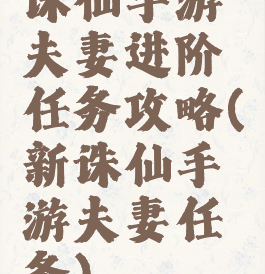 诛仙手游
夫妻进阶
任务攻略(
新诛仙手
游夫妻任
务)